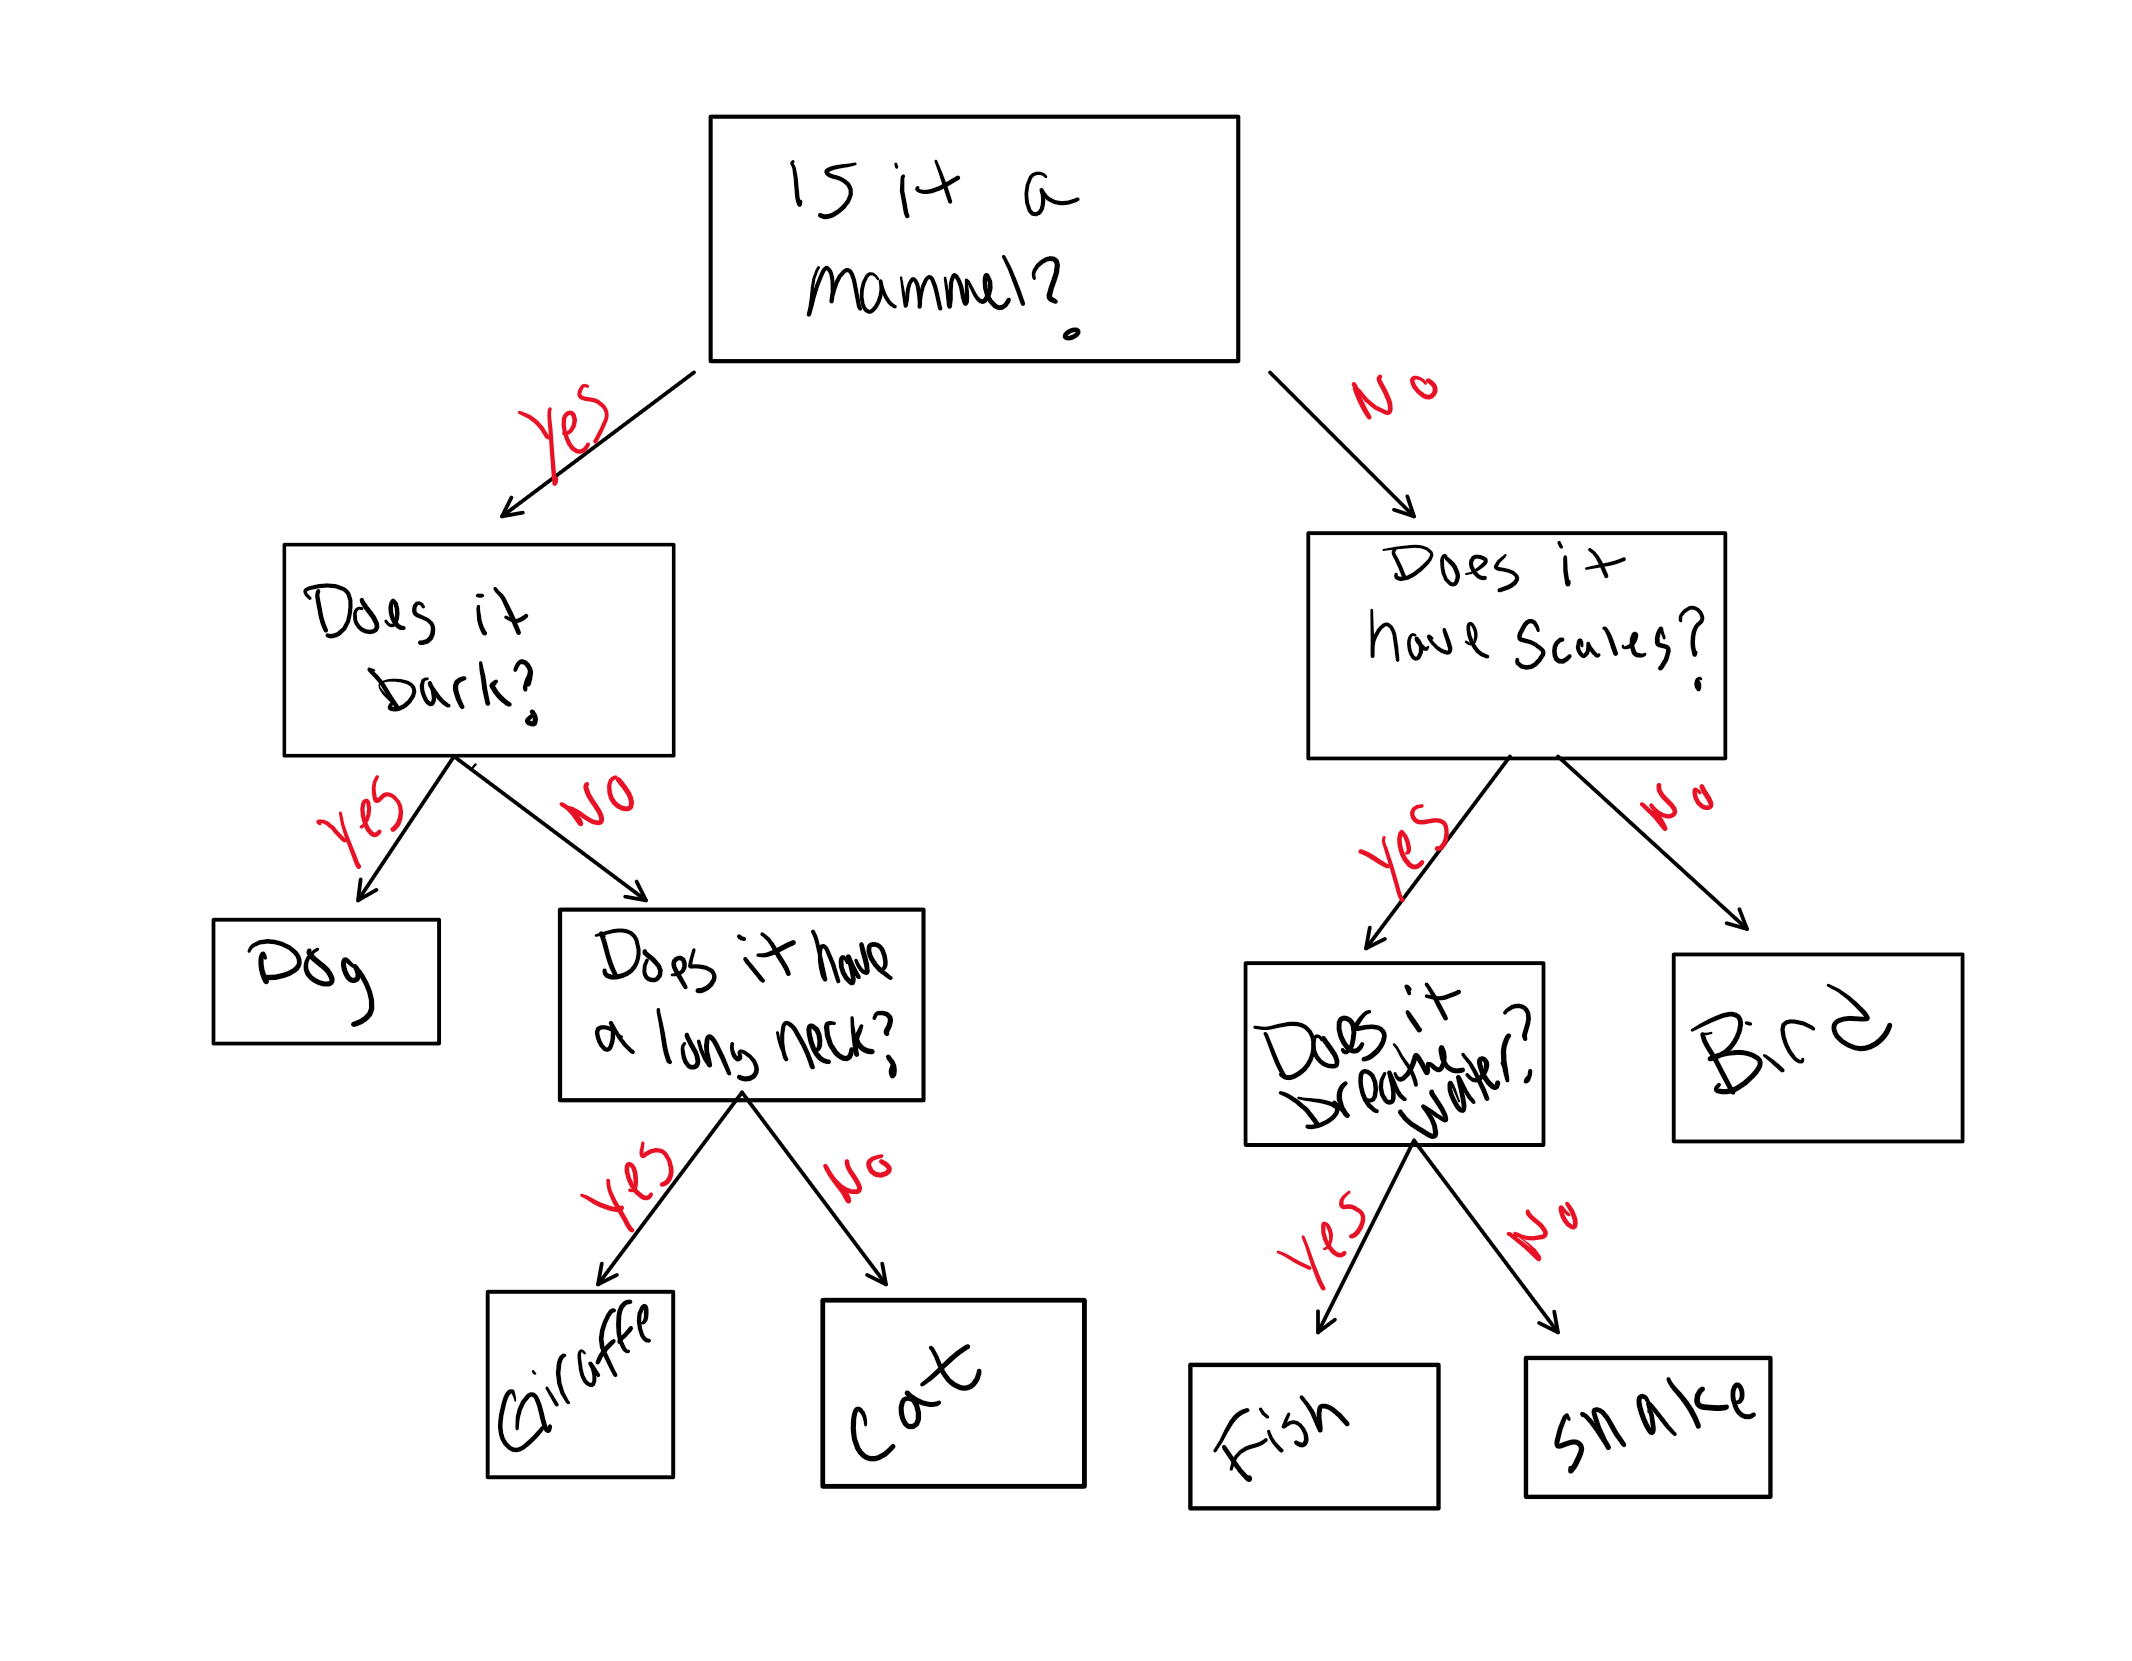 Is it a
mammel?
Yes
No
Does it
bark?
Does it
have scales?
Yes
No
Yes
No
Dog
Does it have
a long neck?
Does it
breathe
water?
Bird
Yes
No
Yes
No
Giraffe
Cat
Fish
Snake